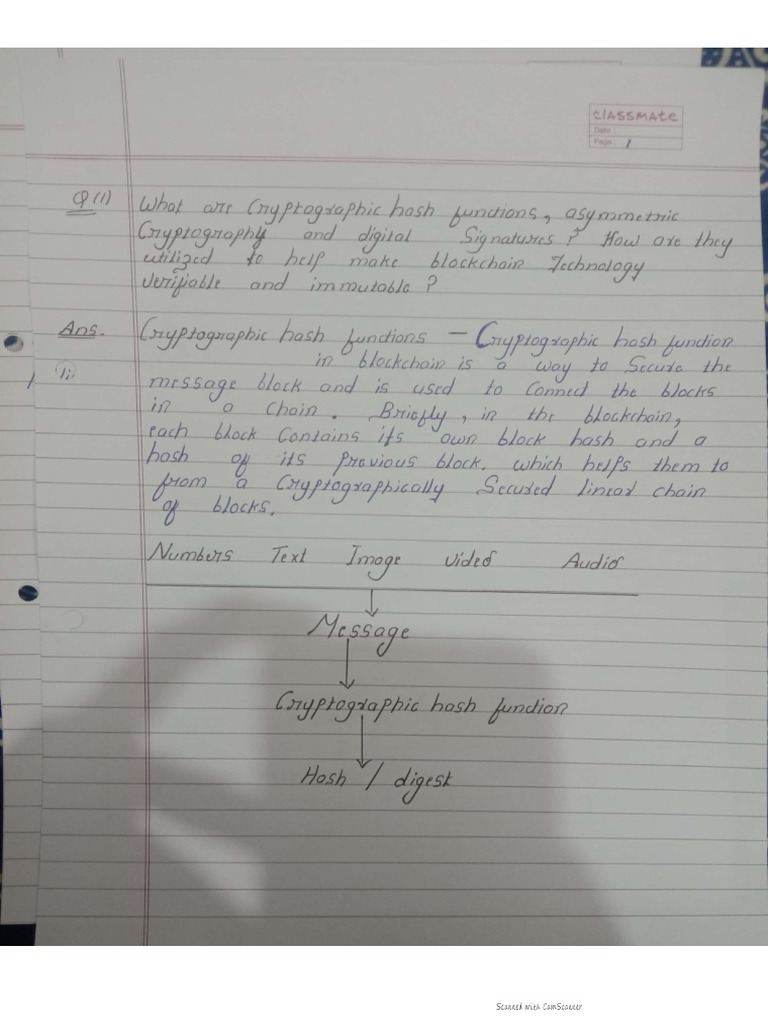 classmate
Date :
Page : 1
Q(1) What are Cryptographic hash functions, asymmetric
Cryptography and digital Signatures? How are they
utilized to help make blockchain Technology
verifiable and immutable?
Ans. Cryptographic hash functions – Cryptographic hash function
(1) in blockchain is a way to Secure the
message block and is used to Connect the blocks
in a Chain. Briefly, in the blockchain,
each block Contains its own block hash and a
hash of its previous block. which helps them to
from a Cryptographically Secured linear chain
of blocks.
Numbers Text Image video Audio
Message
Cryptographic hash function
Hash / digest
Scanned with CamScanner